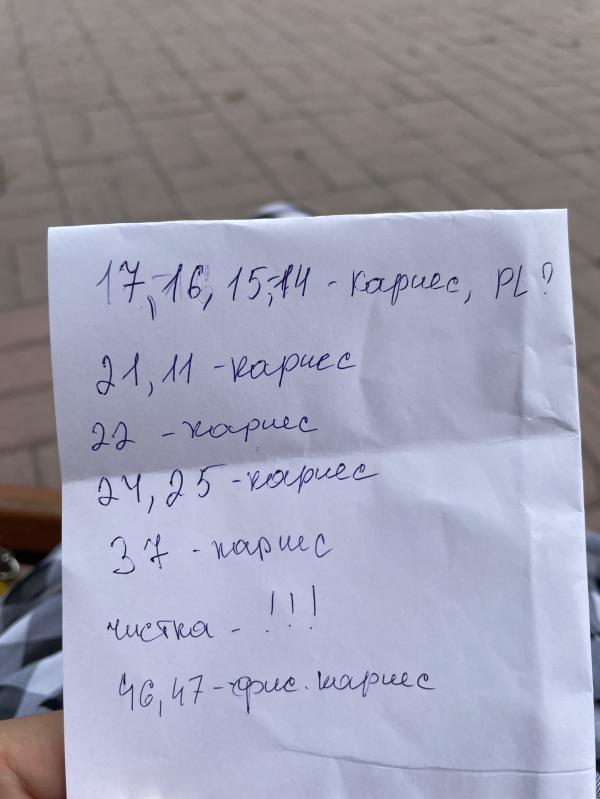 17, 16, 15, 14 - кариес, PL?
21, 11 - кариес
22 - кариес
24, 25 - кариес
37 - кариес
чистка - !!!
46, 47 - фис. кариес